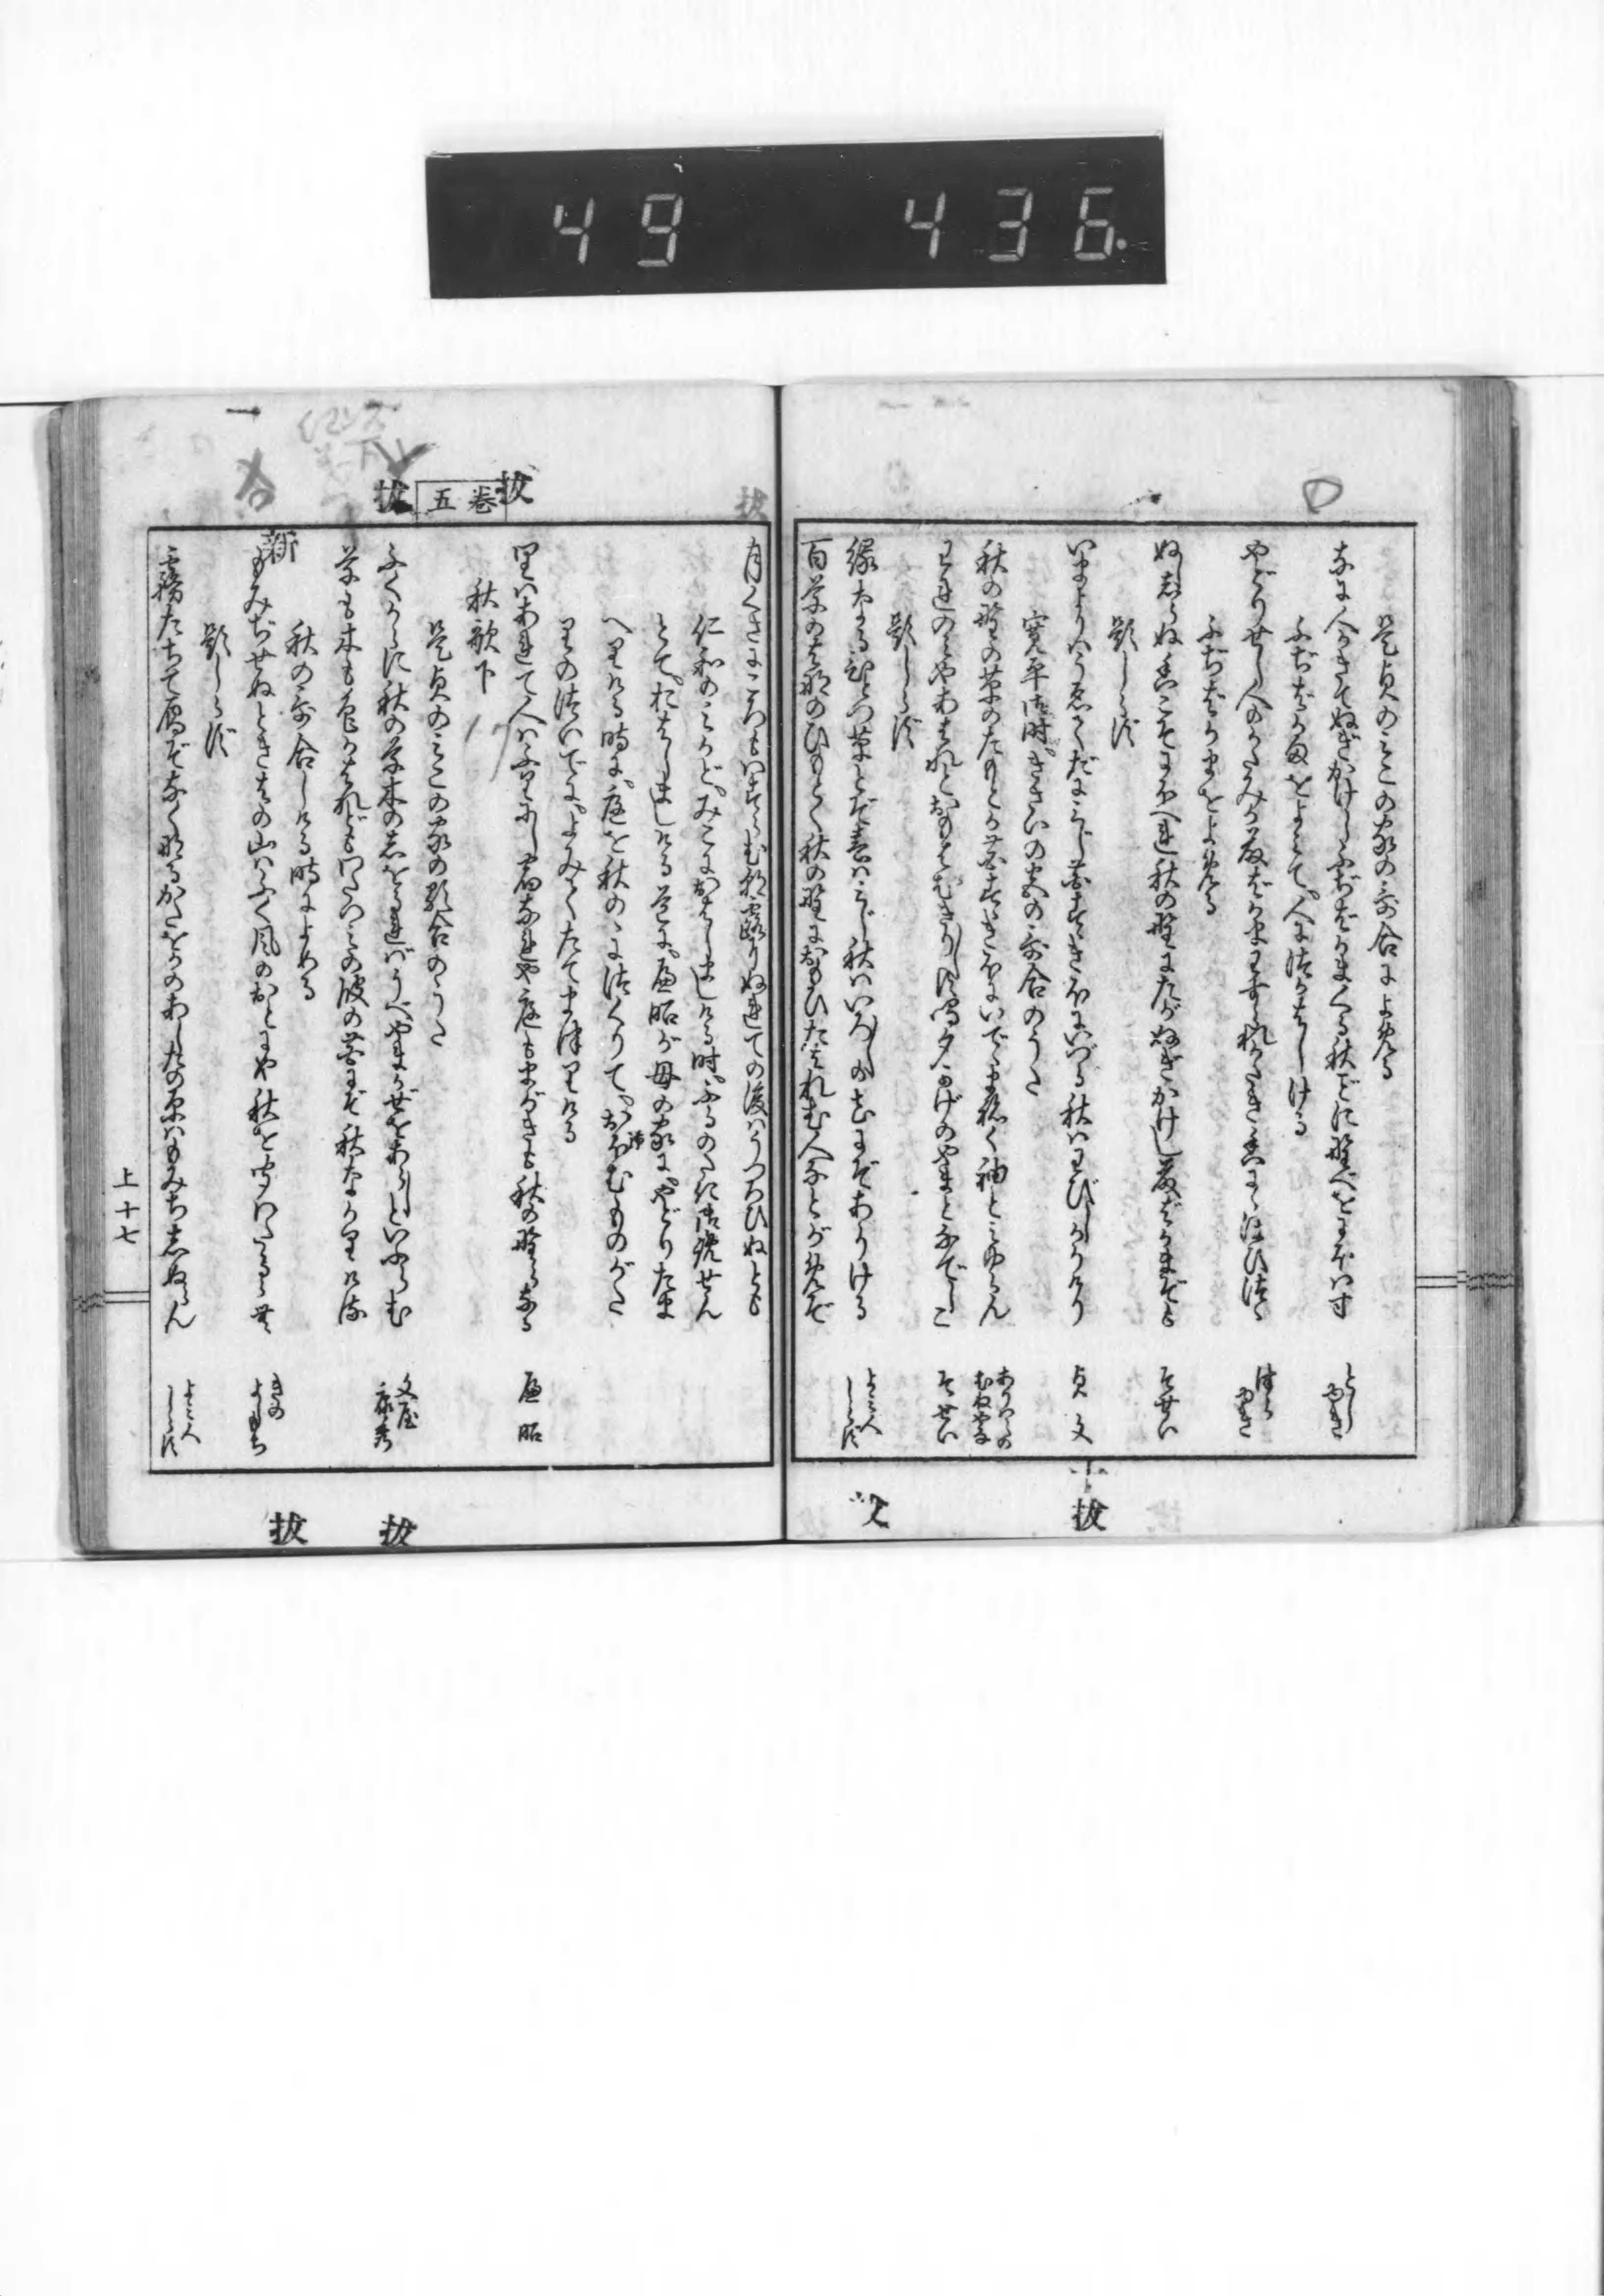 49 436.
是貞のみこの家の哥合によめる
なに人かきてぬぎかけしふぢばかまくる秋ごに野べをにほはす
としゆき
ふぢばかまをよみて。人につかはしける
やどりせし人のかたみか藤ばかまわすられがたき香にゝほひつゝ
つらゆき
ふぢばかまをよめる
ぬししらぬ香こそにほへれ秋の野にたがぬぎかけし藤ばかまぞも
そせい
題しらず
いまよりはうゑてだにみじ花すゝきほにいづる秋はわびしかりけり
貞文
寛平御時。きさいの宮の哥合のうた
秋の野の草のたもとか花すゝきほにいでゝまねく袖とみゆらん
ありはらの
むねやな
われのみやあはれとおもはむきり〴〵す鳴夕かげのやまとなでしこ
そせい
題しらず
緑なるひとつ草とぞ春はみし秋はいろ〳〵の花にぞありける
よみ人
しらず
百草の花のひもとく秋の野におもひたはれむ人なとがめそ
拔
月くさにころもはすらむ朝露にぬれての後はうつろひぬとも
仁和のみかど。みこにおはしましける時。ふるのたき御覧せん
とて。おはしましける道に。遍昭が母の家に。やどりたま
へりける時に。庭を秋のゝにつくりて。おほむものがた
りのついでに。よみてたてまつりける
里はあれて人はふりにし宿なれや庭もまがきも秋の野らなる
遍昭
拔
卷五
秋歌下
是貞のみこの家の歌合のうた
拔
ふくからに秋の草木のしをるればうべやまかぜをあらしといふらむ
文屋
康秀
草も木も色かはれどもわたつみの波の花にぞ秋なかりける
秋の哥合しける時によめる
もみぢせぬときはの山はふく風のおとにや秋を聞わたるらむ
きの
よしもち
題しらず
霧たちて鴈ぞなくなるかたをかのあしたの原はもみちしぬらん
よみ人
しらず
上十七
拔
拔
拔